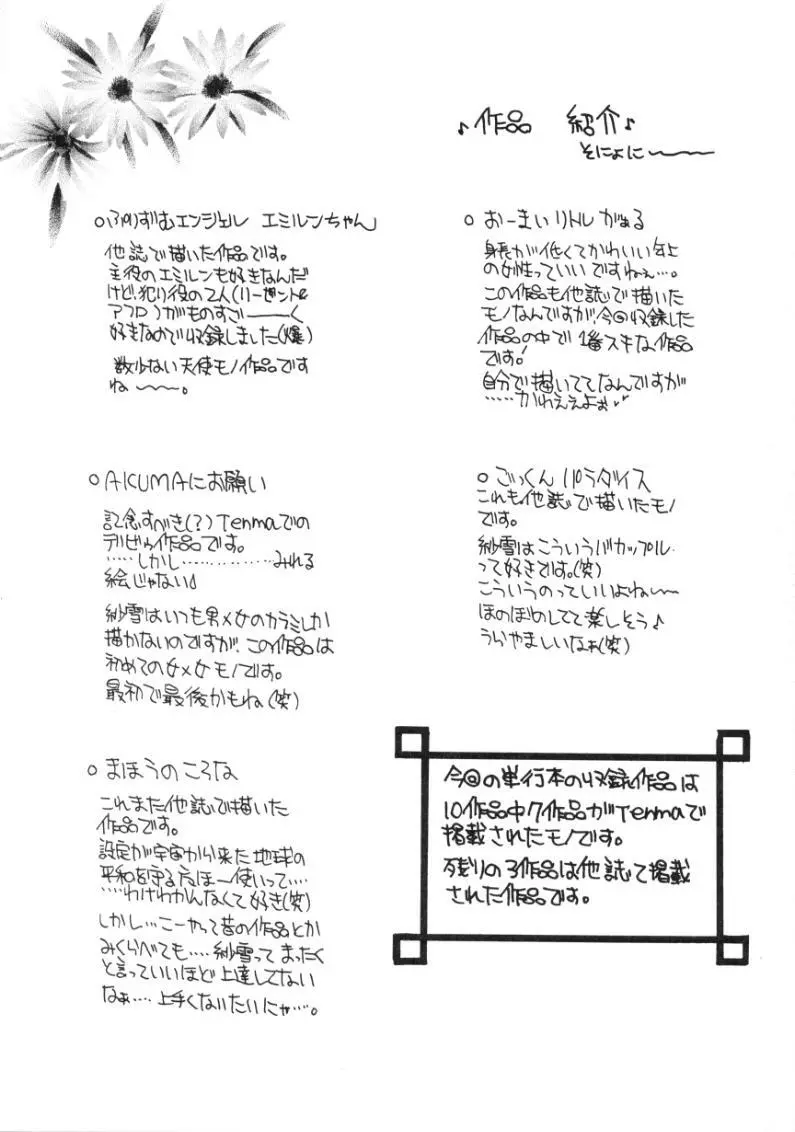 ♪作品 紹介♪
そにょに〜〜〜
○ぷりずむエンジェル エミルンちゃん
他誌で描いた作品です。
主役のエミルンも好きなんだ
けど、犯り役の2人(リーゼント&
アフロ)がものすごーーく
好きなので収録しました(爆)
数少ない天使モノ作品です
ね〜〜。
○AKUMAにお願い
記念すべき(?)Tenmaでの
デビュー作品です。
……しかし……………みれる
絵じゃない
紗雪はいつも男×女のカラミしか
描かないのですが、この作品は
初めての女×女モノです。
最初で最後かもね(笑)
○まほうのころな
これまた他誌で描いた
作品です。
設定が宇宙から来た地球の
平和を守るまほー使いって…
……わけわかんなくて好き(笑)
しかし…こーやって昔の作品とか
みくらべても…紗雪ってまったく
と言っていいほど上達してない
なぁ…上手くないたいにゃ…。
○おーまいリトルがぁる
身長が低くてかわいい年上
の女性っていいですねぇ…。
この作品も他誌で描いた
モノなんですが、今回収録した
作品の中で1番スキな作品
です!
自分で描いててなんですが
……かわええよぉ
○ごっくんパラダイス
これも他誌で描いたモノ
です。
紗雪はこういうバカップル
って好きです。(笑)
こういうのっていいよね〜〜
ほのぼのしてて楽しそう♪
うらやましいなぁ(笑)
今回の単行本の収録作品は
10作品中7作品がTenmaで
掲載されたモノです。
残りの3作品は他誌で掲載
された作品です。